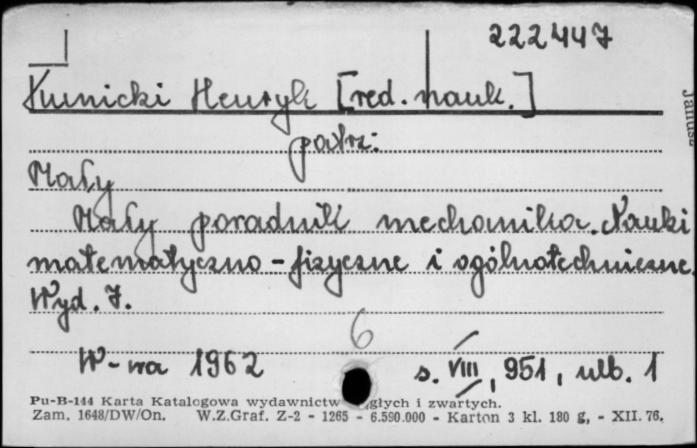 222447
Kunicki Henryk [red. nauk.]
patrz:
Mały
Mały poradnik mechanika. Nauki
matematyczno-fizyczne i ogólnotechniczne.
Wyd. 7.
6
W-wa 1962 s. VIII, 951, ulb. 1
Pu-B-144 Karta Katalogowa wydawnictw ągłych i zwartych.
Zam. 1648/DW/On. W.Z.Graf. Z-2 - 1265 - 6.590.000 - Karton 3 kl. 180 g, - XII. 76.